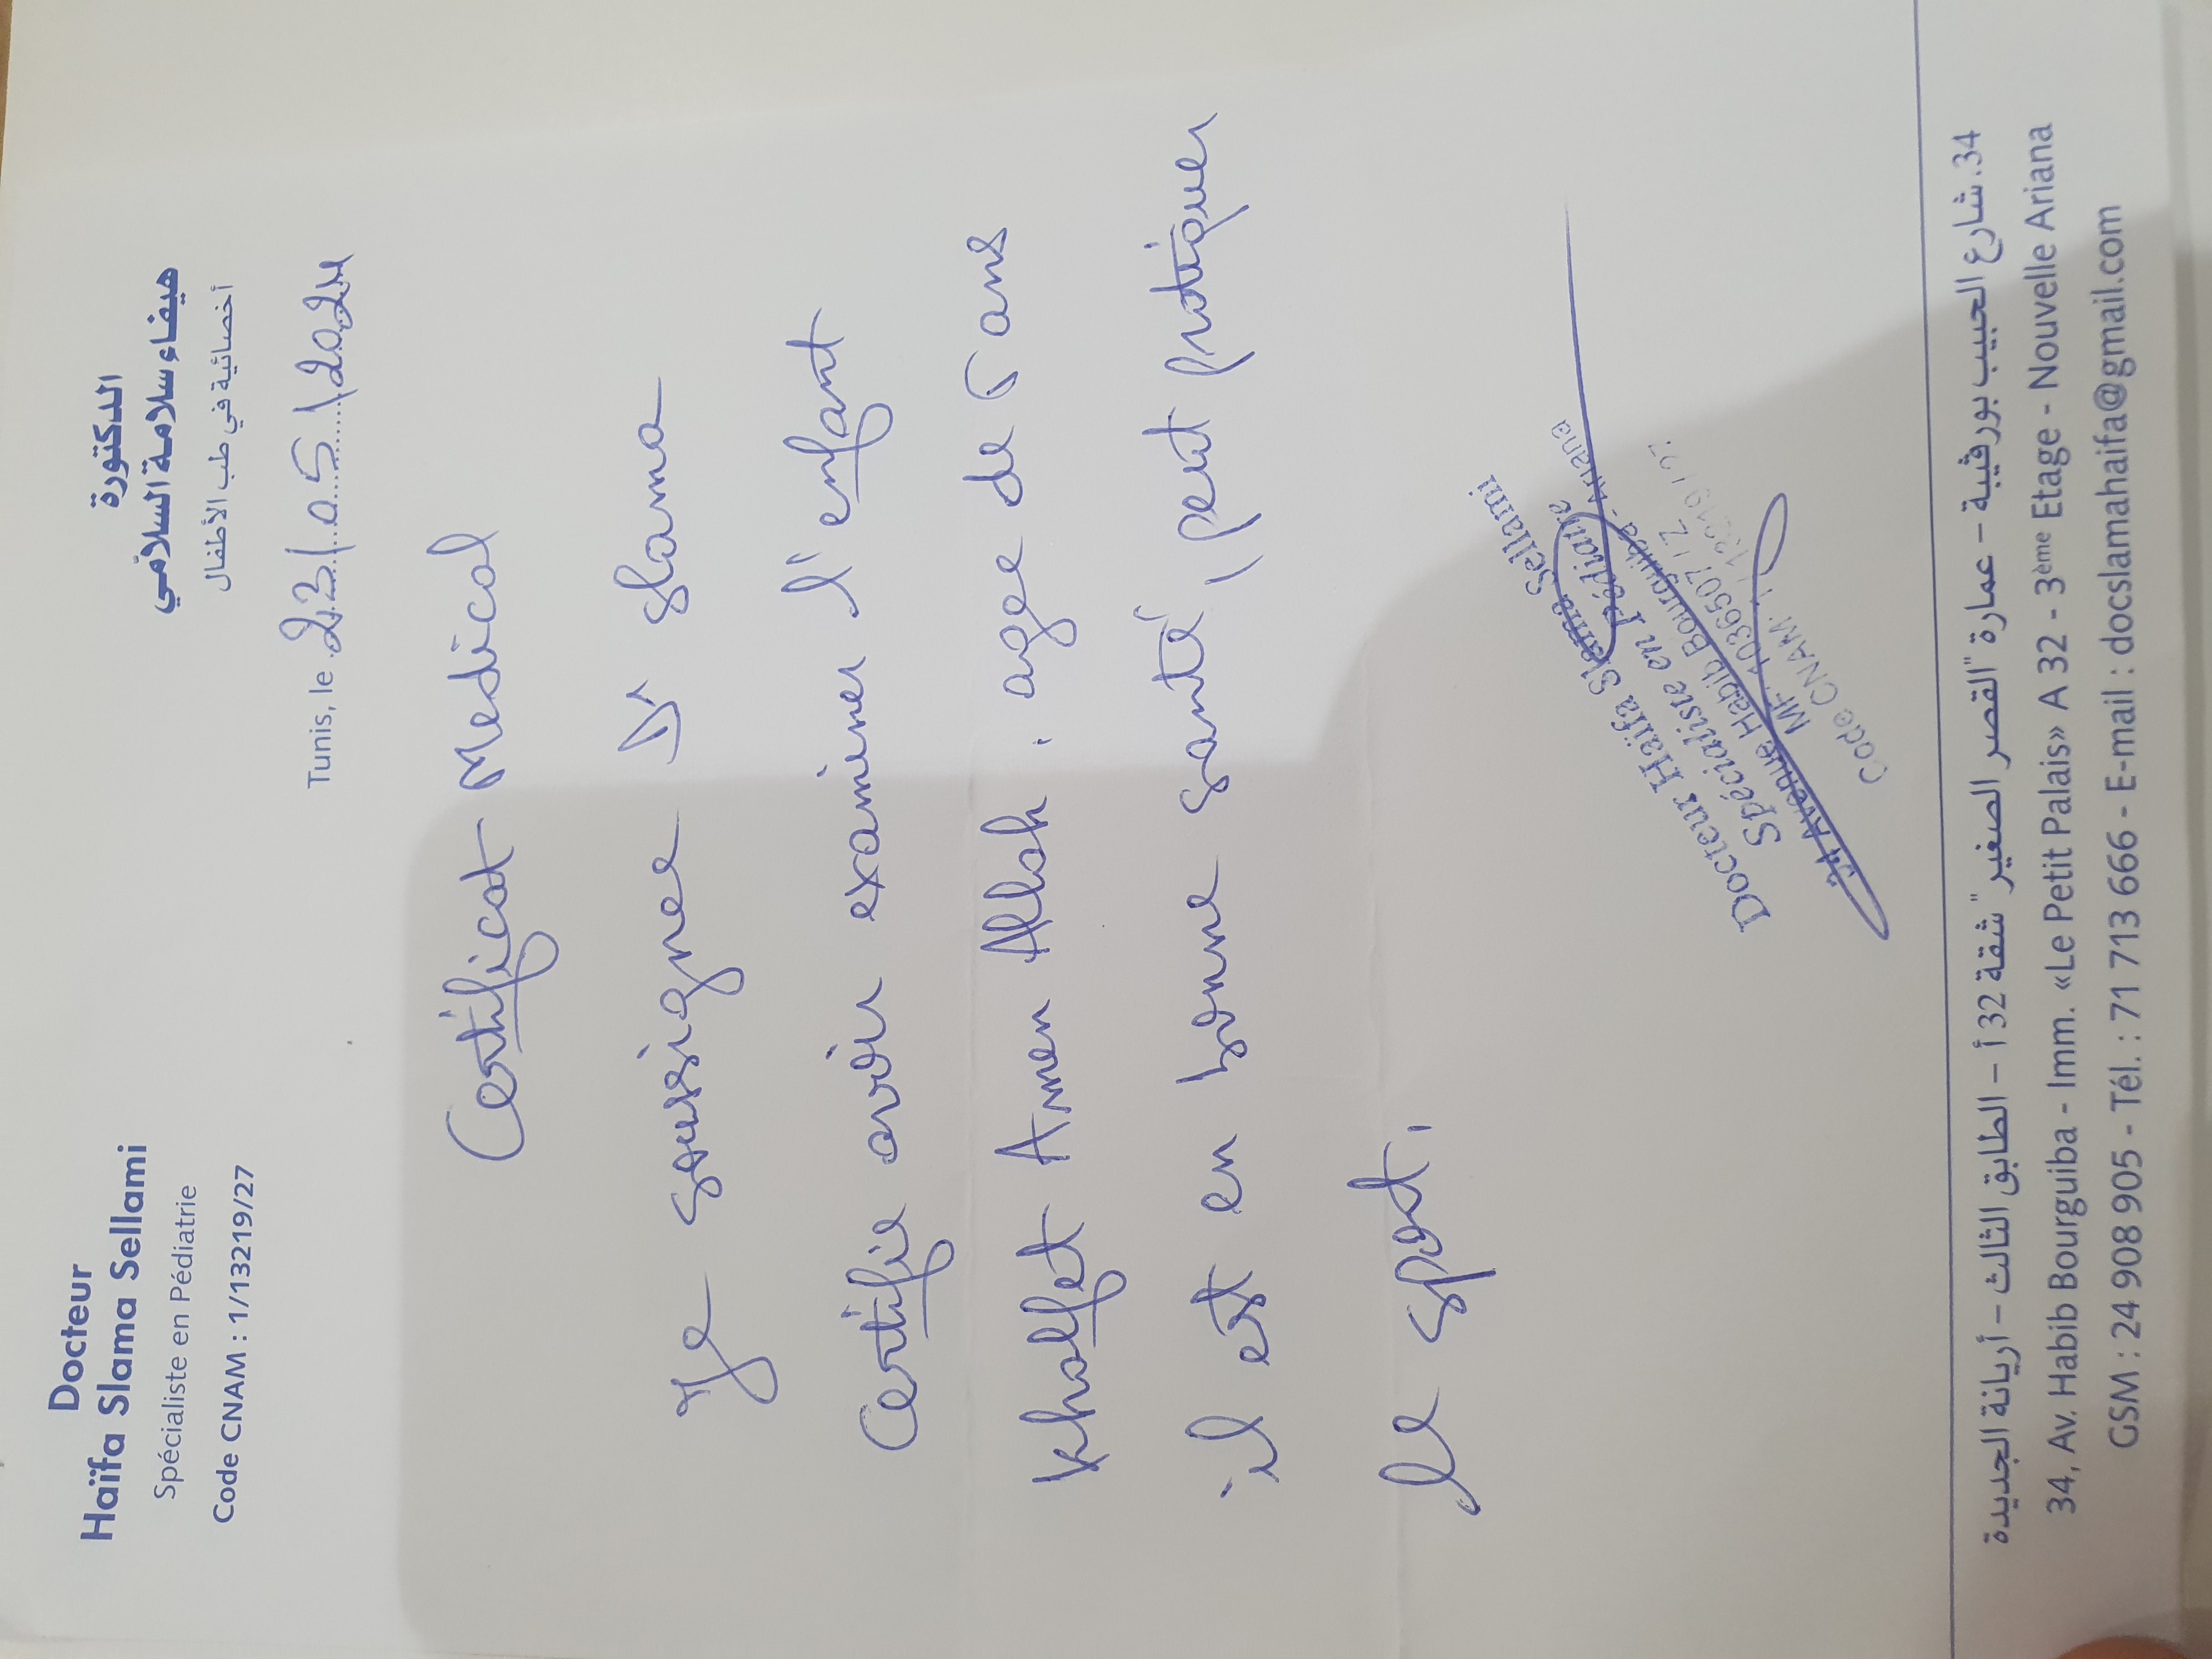 Docteur
Haïfa Slama Sellami
Spécialiste en Pédiatrie
Code CNAM : 1/13219/27
الدكتورة
هيفاء سلامة السلامي
أخصائية في طب الأطفال
Tunis, le 23/05/2024
Certificat Medical
Je soussignee Dr Slama
Certifie avoir examiner l'enfant
Khalfet Amen Allah. age de 5 ans
il est en bonne santé, peut pratiquer
le sport.
Docteur Haïfa Slama Sellami
Spécialiste en Pédiatrie
34 Avenue Habib Bourguiba - Ariana
MF 1036507
Code CNAM 1/13219/27
34.شارع الحبيب بورقيبة – عمارة "القصر الصغير" شقة 32 أ – الطابق الثالث – أريانة الجديدة
34, Av. Habib Bourguiba - Imm. «Le Petit Palais» A 32 - 3ème Etage - Nouvelle Ariana
GSM : 24 908 905 - Tél. : 71 713 666 - E-mail : docslamahaifa@gmail.com